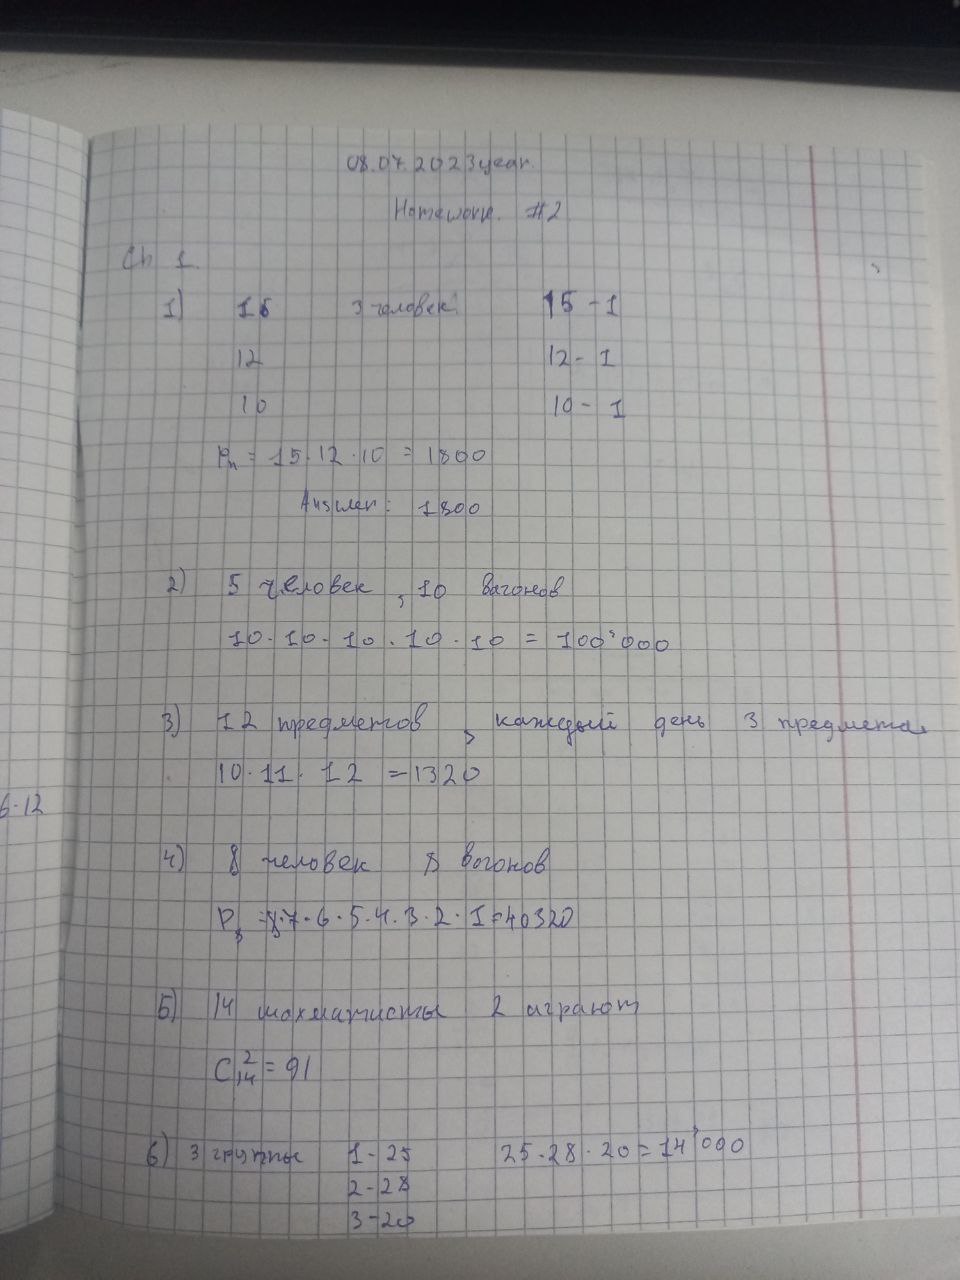 08.07.2023 year.
Homework. #2
Ch 1.
1) 15 3 человек 15 - 1
12 12 - 1
10 10 - 1
Pn = 15 · 12 · 10 = 1800
Answer: 1800
2) 5 человек, 10 вагонов
10 · 10 · 10 · 10 · 10 = 100'000
3) 12 предметов, каждый день 3 предмета
10 · 11 · 12 = 1320
6·12
4) 8 человек 8 вогонов
P8 = 8·7·6·5·4·3·2·1=40320
5) 14 шахматисты 2 играют
C²14 = 91
6) 3 группы 1 - 25 25·28·20=14'000
2 - 28
3 - 20